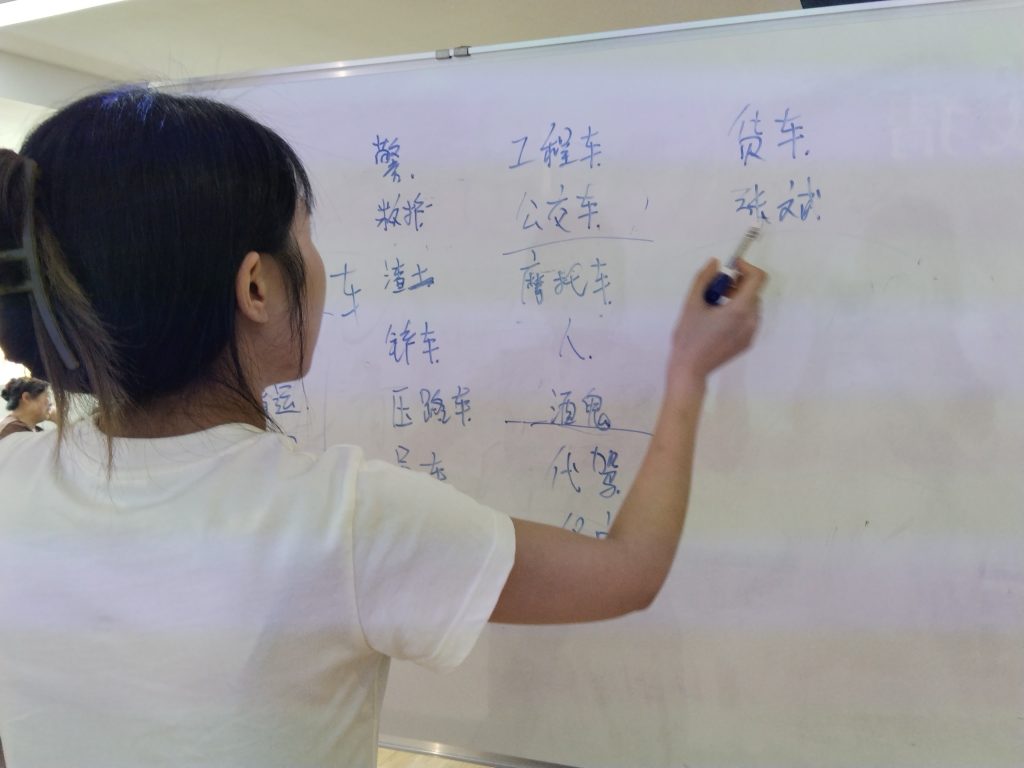 警.
救护
车
渣土
铲车.
压路车
工程车
公交车
摩托车
人.
酒鬼
代驾
货车.
张斌